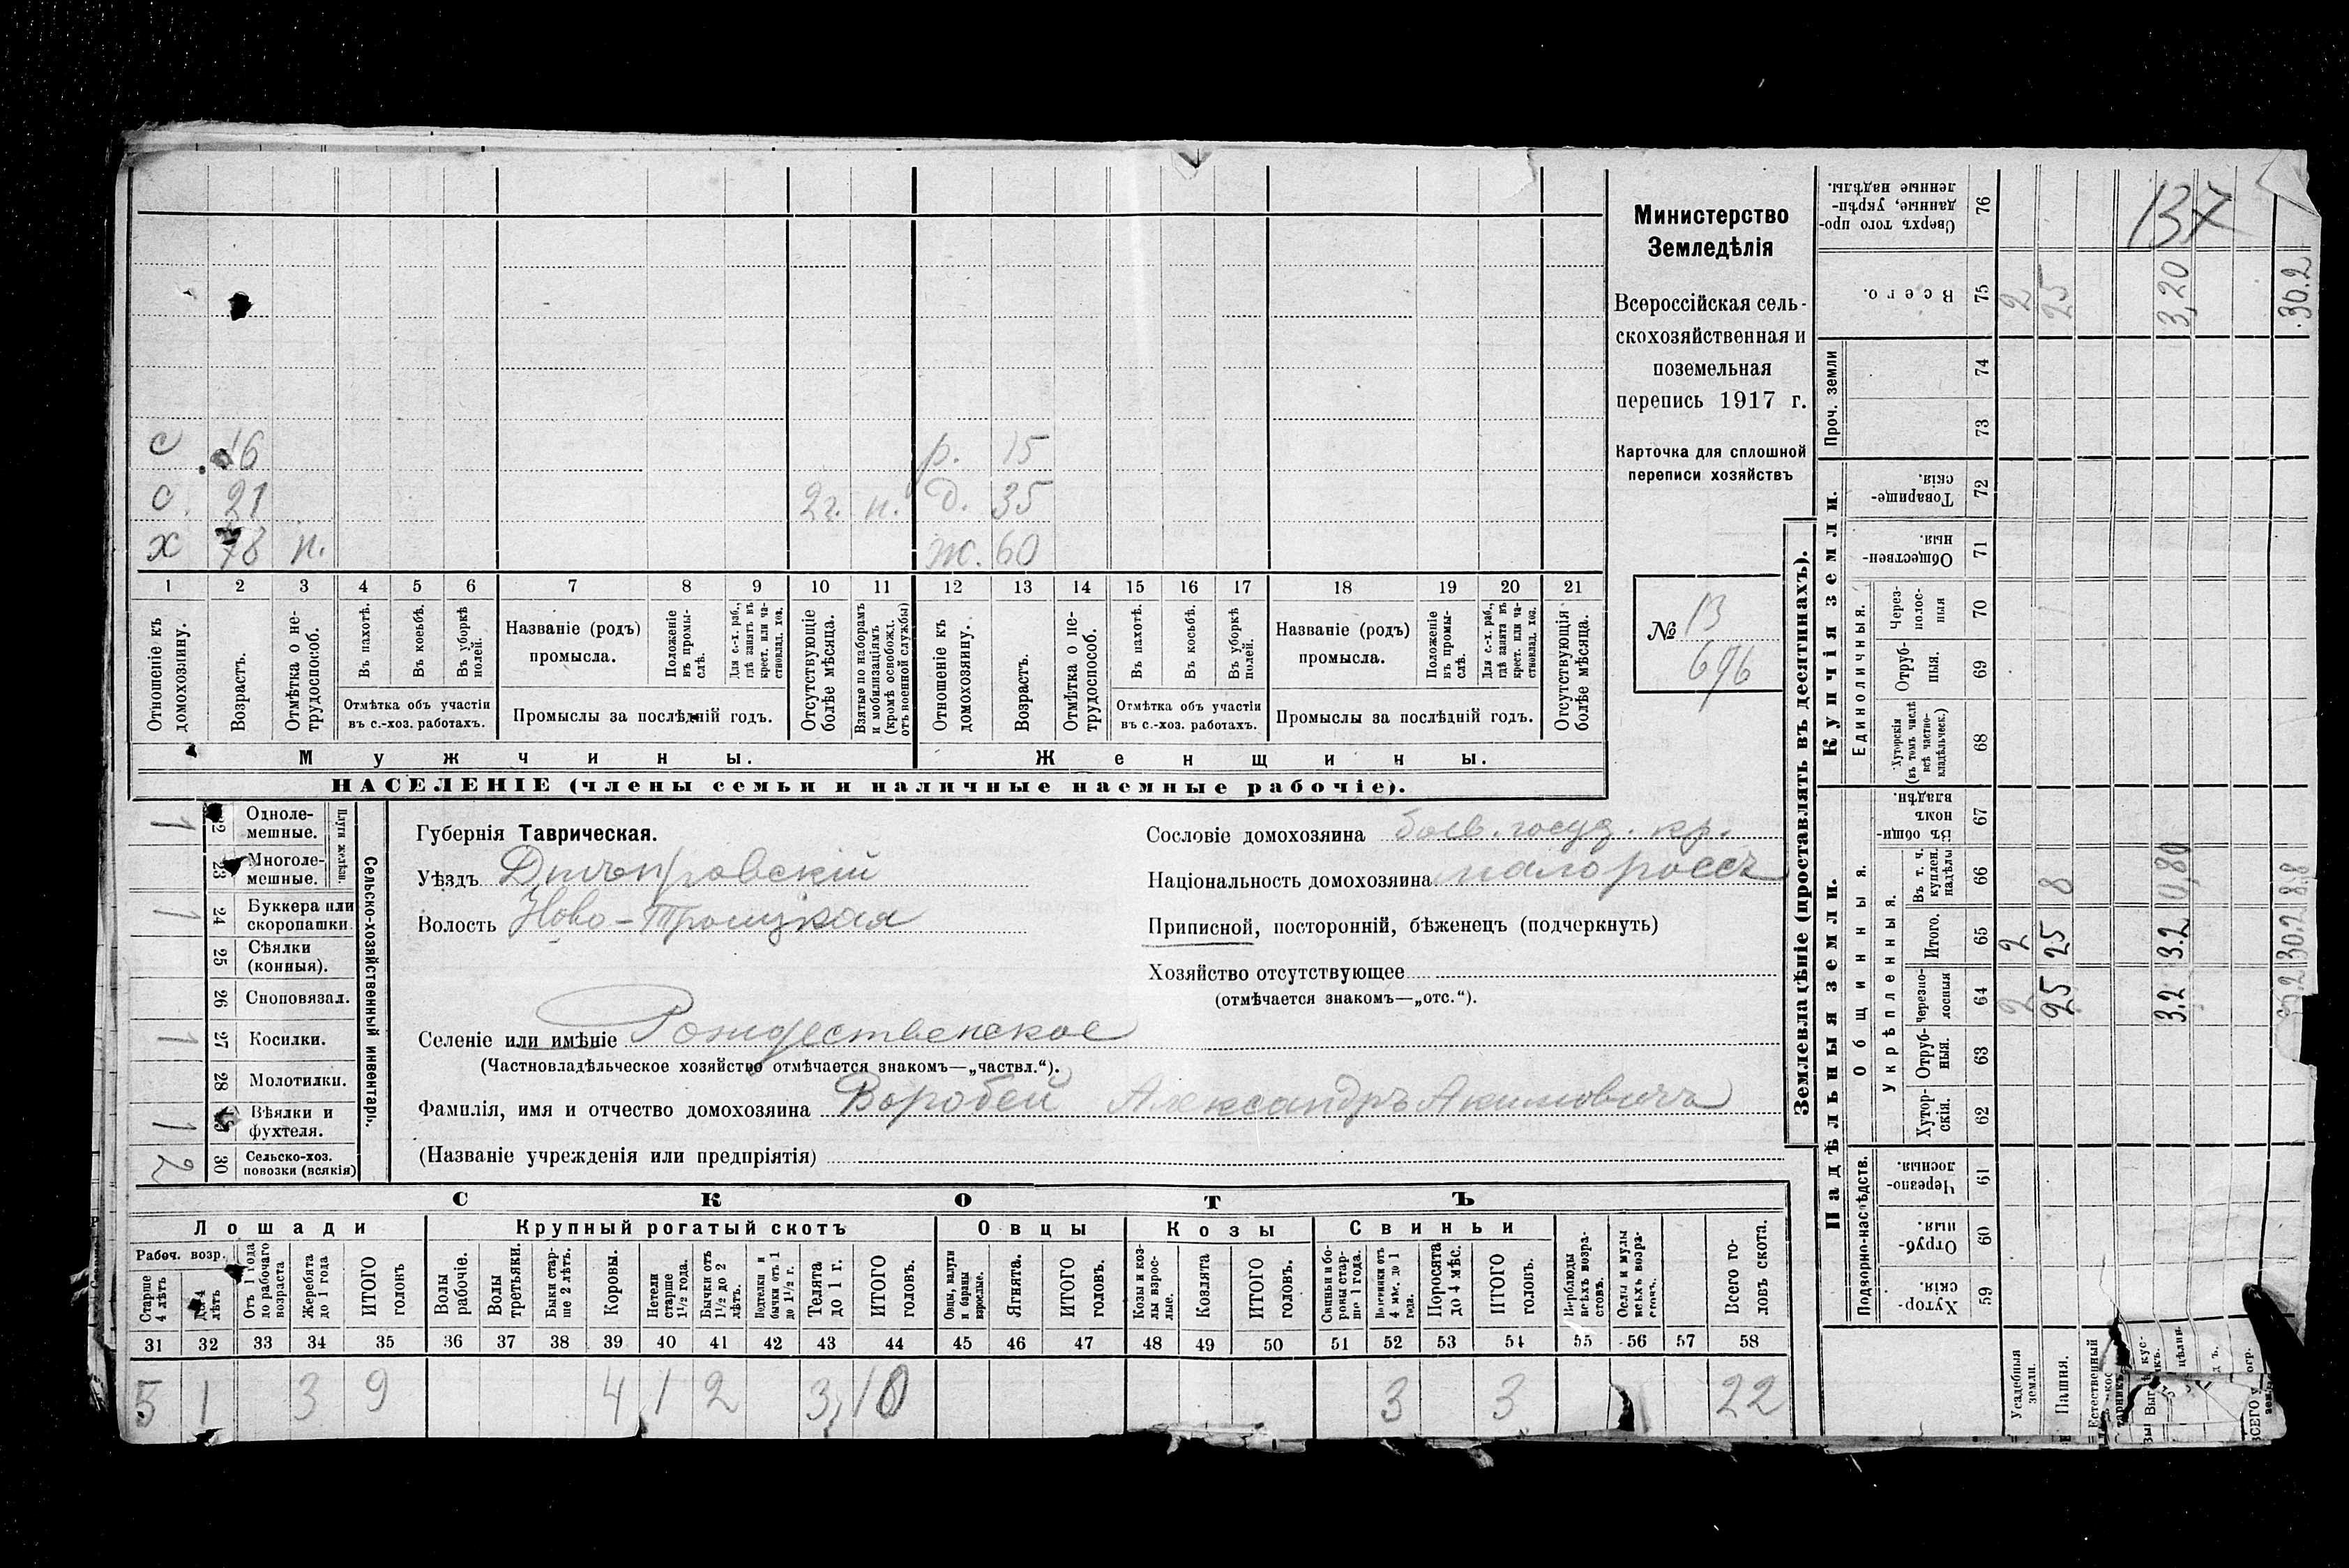 137
Министерство
Земледѣлія
Всероссійская сель-
скохозяйственная и
поземельная
перепись 1917 г.
Карточка для сплошной
переписи хозяйствъ
№ 13
696
с 16 р. 15
с. 21 2г. н. д. 35
х 78 н. ж. 60
1 2 3 4 5 6 7 8 9 10 11 12 13 14 15 16 17 18 19 20 21
Отношеніе къ домохозяину.
Возрастъ.
Отмѣтка о не-трудоспособ.
Въ пахотѣ.
Въ косьбѣ.
Въ уборкѣ полей.
Отмѣтка объ участіи
въ с.-хоз. работахъ.
Названіе (родъ)
промысла.
Положеніе въ промы-слѣ.
Для с.-х. раб., гдѣ занятъ въ крест. или ча-стновлад. хоз.
Промыслы за послѣдній годъ.
Отсутствующіе болѣе мѣсяца.
Взятые по наборамъ и мобилизаціямъ (кромѣ освобожд. отъ военной службы)
Отношеніе къ домохозяину.
Возрастъ.
Отмѣтка о не-трудоспособ.
Въ пахотѣ.
Въ косьбѣ.
Въ уборкѣ полей.
Отмѣтка объ участіи
въ с.-хоз. работахъ.
Названіе (родъ)
промысла.
Положеніе въ промы-слѣ.
Для с.-х. раб., гдѣ занята въ крест. или ча-стновлад. хоз.
Промыслы за послѣдній годъ.
Отсутствующія болѣе мѣсяца.
Мужчины. Женщины.
НАСЕЛЕНІЕ (члены семьи и наличные наемные рабочіе).
Сельско-хозяйственный инвентарь.
Плуги желѣзн.
1 22 Одноле-мешные.
23 Многоле-мешные.
1 24 Буккера или скоропашки.
25 Сѣялки (конныя).
26 Сноповязал.
1 27 Косилки.
28 Молотилки.
1 Вѣялки и фухтеля.
2 30 Сельско-хоз. повозки (всякія)
Губернія Таврическая.
Уѣздъ Днѣпровскій
Волость Ново-Троицкая
Селеніе или имѣніе Рождественское
(Частновладѣльческое хозяйство отмѣчается знакомъ—„частвл.“).
Фамилія, имя и отчество домохозяина Воробей Александръ Акимовичъ
(Названіе учрежденія или предпріятія)
Сословіе домохозяина госуд. кр.
Національность домохозяина малороссъ
Приписной, посторонній, бѣженецъ (подчеркнуть)
Хозяйство отсутствующее
(отмѣчается знакомъ—„отс.“).
СКОТЪ
Лошади Крупный рогатый скотъ Овцы Козы Свиньи
Рабоч. возр.
Старше 4 лѣтъ
До 4 лѣтъ
Отъ 1 года до рабочаго возраста
Жеребята до 1 года
ИТОГО головъ
Волы рабочіе.
Волы третьяки.
Быки стар-ше 2 лѣтъ.
Коровы.
Нетели старше 1½ года.
Бычки отъ 1½ до 2 лѣтъ.
Подтелки и бычки отъ 1 до 1½ г.
Телята до 1 г.
ИТОГО головъ.
Овцы, валухи и бараны взрослые.
Ягнята.
ИТОГО головъ.
Козы и коз-лы взрос-лые.
Козлята
ИТОГО головъ.
Свиньи и бо-ровы стар-ше 1 года.
Подсвинки отъ 4 мѣс. до 1 года.
Поросята до 4 мѣс.
ИТОГО головъ.
Верблюды всѣхъ возра-стовъ.
Ослы и мулы всѣхъ возра-стовъ.
Всего го-ловъ скота.
31 32 33 34 35 36 37 38 39 40 41 42 43 44 45 46 47 48 49 50 51 52 53 54 55 56 57 58
5 1 3 9 4 1 2 3 10 3 3 22
Землевладѣніе (проставлять въ десятинахъ).
Надѣльныя земли. Купчія земли. Проч. земли
Подворно-наслѣдств. Общинныя. Единоличныя.
Укрѣпленныя.
Хутор-скія. 59
Отруб-ныя. 60
Черезпо-лосныя. 61
Хутор-скія. 62
Отруб-ныя. 63
Черезпо-лосныя 64
Итого. 65
Въ т. ч. куплен. надѣлы 66
Въ общин-номъ владѣн. 67
Хуторскія (въ томъ числѣ всѣ частно-владѣльческ.) 68
Отруб-ныя. 69
Через-полос-ныя 70
Обществен-ныя. 71
Товарище-скія. 72
73
74
Всего. 75
Сверхъ того про-данные, укрѣп-ленные надѣлы. 76
Усадебныя земли. 2 2 2
Пашня. 25 25 8 25
Естественный
3.2 3.2 0,80 3,20
30.2 8.8 30.2